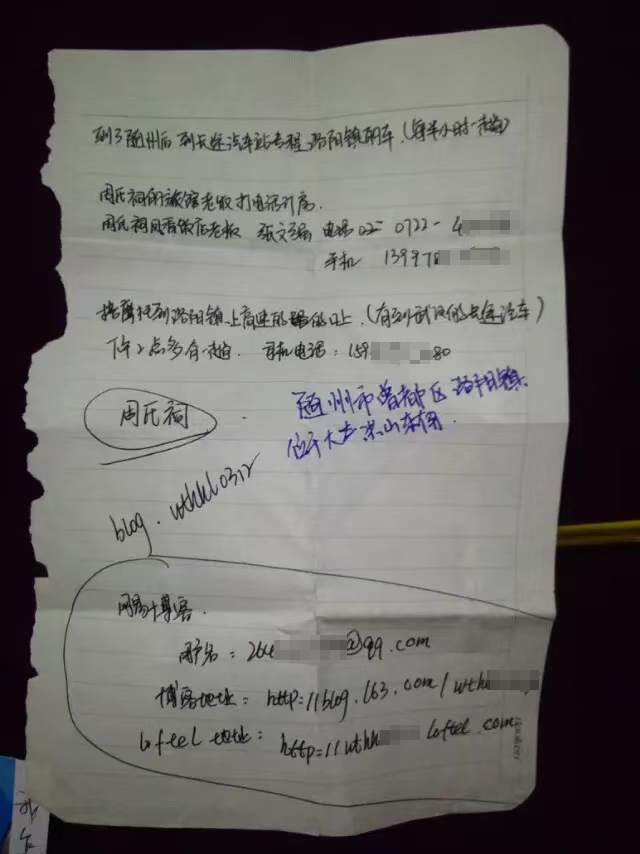 到了随州后 到长途汽车站专程 洛阳镇的车.(每半小时一趟)
周氏祠的旅馆老板打电话订房.
周氏祠风香饭店老板 张文强 电话 0722-4
手机 13997
摩托到洛阳镇上高速的路口上.(有到武汉的长途汽车)
下午2点多有一趟. 司机电话: 159 80
周氏祠
随州市曾都区洛阳镇.
位于大洪山东南.
blog.wthkl0312
网易博客.
用户名: 264 @qq.com
博客地址: http=11blog.163.com/wthh
loftel 地址: http=11wthh loftel.com